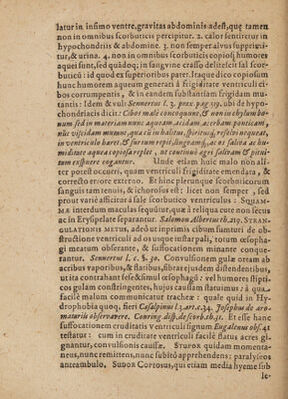 latur in infimo ventre, gravitas abdominis adest, quæ tamen
non in omnibus scorbuticis percipitur. 2. calor sentircur in
hypochondriis & abdomine. 3. non semper alvus supprimi-
tur, & urina. 4. non in omnibus scorbuticis copiosi humores
aquei sunt, sed quidem; in sanguine crasso delitescit sal scor-
buticū: id quod ex superioribus patet. Itaque dico copiosum
hunc humorem aqueum generari à frigiditate ventriculi ci-
bos corrumpentis, & in eandem substantiam frigidam mu-
tantis: Idem & vult Sennertus l. 3. prax. pag 119. ubi de hypo-
chondriacis dicit: Cibos male concoquunt, & non in chylum bo-
num sed in materiam nunc aquosam, acidam acerbam ponticam,
nūc viscidam mutant, qua cū in halitus, spiritusq́, resolvi nequeat,
in ventriculo hæret, & sursum repit, linguamq́, ac os saliva ac hu-
miditate aquea copiosa replet, ut continuò ægri salivam & pitui-
tam exspuere cogantur. Unde etiam huic malo non ali-
ter potest occurri, quam ventriculi frigiditate emendata, &
correcto errore externo. Et hinc plerunque scorbuticorum
sanguis tam tenuis, & ichorosus est: licet non semper, sed
prout variè afficitur à sale scorbutico ventriculus: SQUAM-
MÆ interdum maculas sequutur, quæ à reliqua cute non secus
ac in Erysipelate separantur. Salomon Albertus th. 219. STRAN-
GULATIONIS METUS, adeò ut inprimis cibum sumturi de ob-
structione ventriculi ad os usque instar pali, totum œsopha-
gi meatum obserante, & suffocationem minante conque-
rantur. Sennertus l. c. §. 30. Convulsionem gulæ oream ab
acribus vaporibus, & flatibus, fibras ejusdem distendentibus,
ut ita contrahant sese & simul œsophagū: vel humores stipti-
cos gulam constringentes, hujus caussam statuimus: à qua
facilè malum communicatur tracheæ: quale quid in Hy-
drophobia quoq, fieri Casalpinus l. 3. art. c. 34. Josephus de aro-
matariis observavere. Conring disp. de scorb. th. 31. Et esse hanc
suffocationem eruditatis ventriculi signum Eugalenus obs. 41
testatur: cum in cruditate ventriculi facilè status acres gi-
gnantur, convulsionis caussæ. STUPOR quidam momenta-
neus, nunc remittens, nunc subitò apprehendens: paralyseos
anteambulo. SUDOR COPIOSUS, qui etiam media hyeme sub
le-